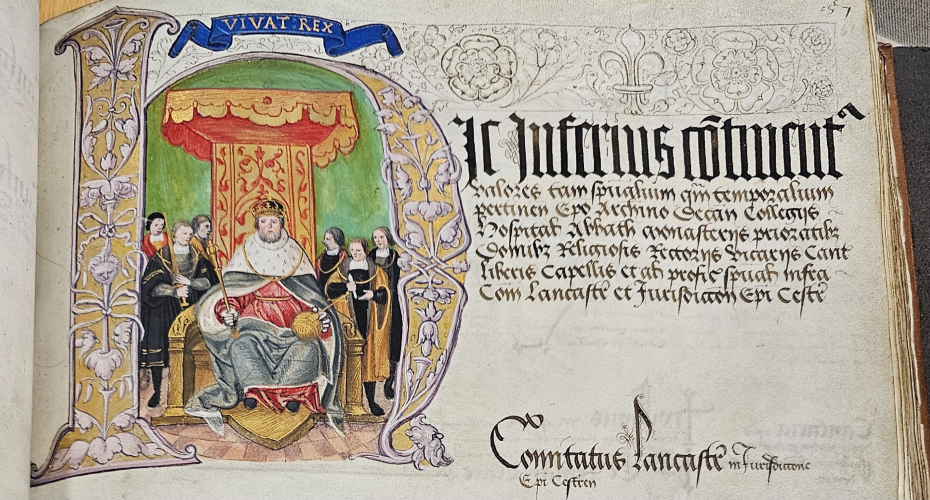 VIVAT REX
Hic Inferius cōtinent
valores tam spualium qm temporalium
pertinen Epo Archino Decan Collegiis
Hospital Abbath monasteriis prioratibz
Domibz Religiosis Rectoriis Vicariis Cant
liberis Capellis et al profic spual infra
Com Lancastr et Jurisdiccon Epi Cestr
Comitatus Lancastr in Jurisdiccone
Epi Cestren